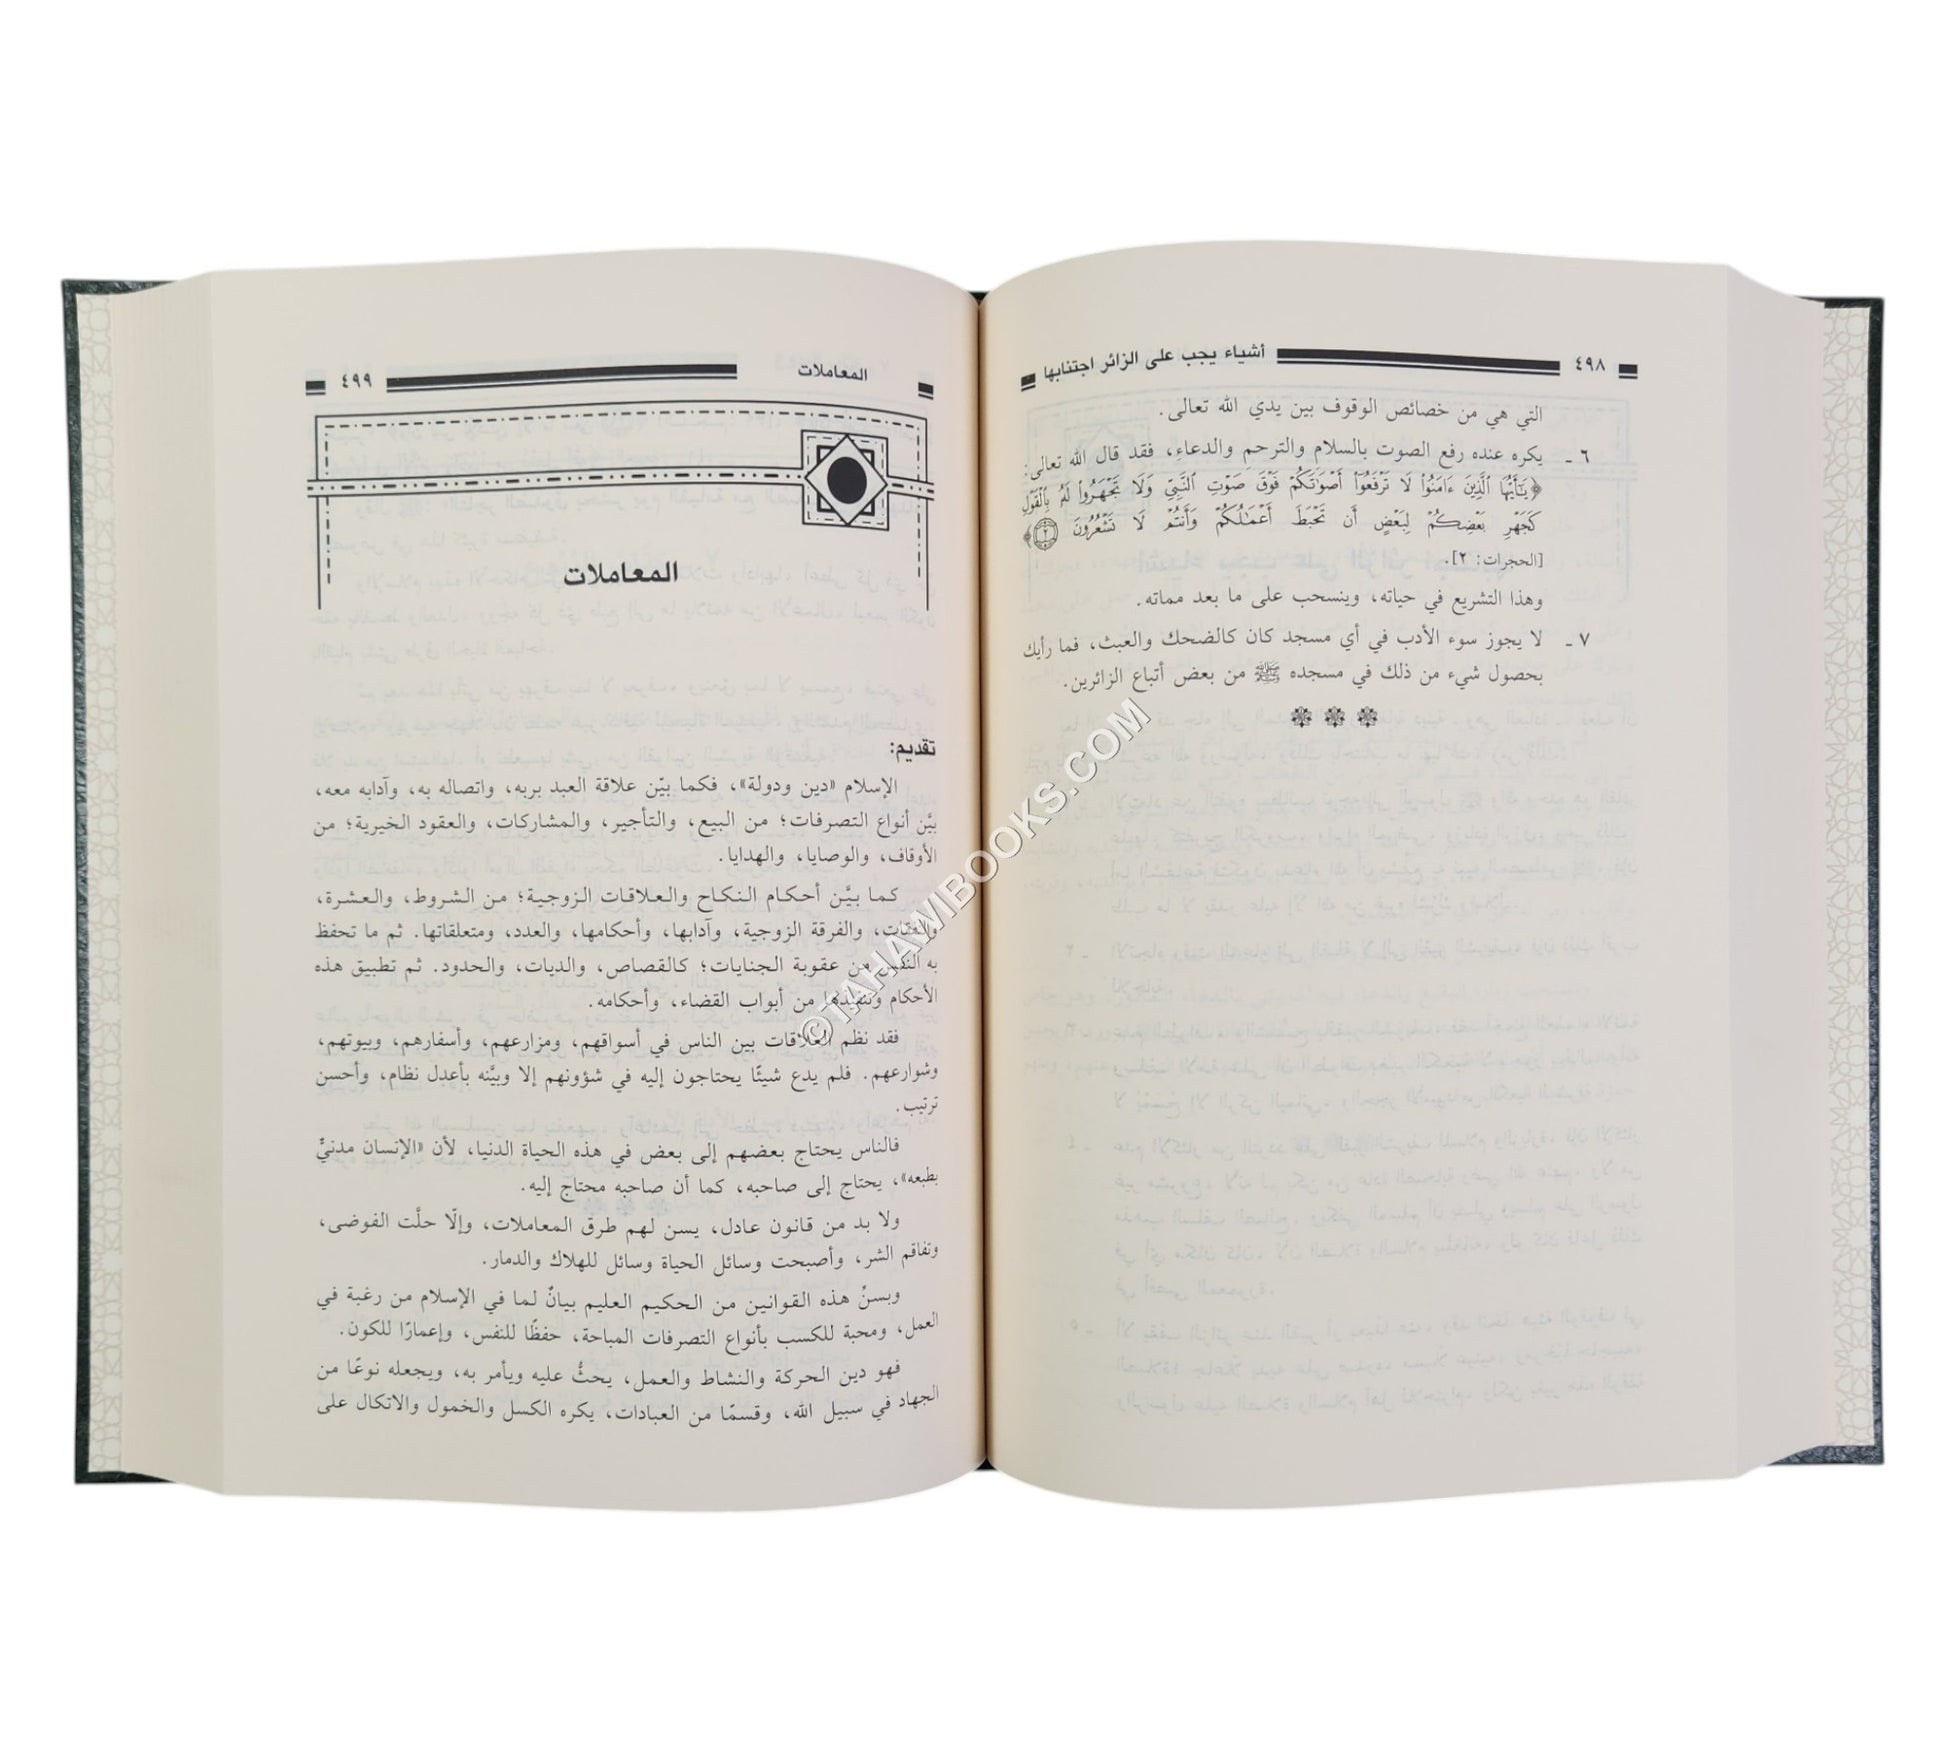 ٤٩٨ أشياء يجب على الزائر اجتنابها
التي هي من خصائص الوقوف بين يدي الله تعالى.
٦ ـ يكره عنده رفع الصوت بالسلام والترحم والدعاء، فقد قال الله تعالى:
﴿يَٰٓأَيُّهَا ٱلَّذِينَ ءَامَنُوا۟ لَا تَرْفَعُوٓا۟ أَصْوَٰتَكُمْ فَوْقَ صَوْتِ ٱلنَّبِيِّ وَلَا تَجْهَرُوا۟ لَهُۥ بِٱلْقَوْلِ
كَجَهْرِ بَعْضِكُمْ لِبَعْضٍ أَن تَحْبَطَ أَعْمَٰلُكُمْ وَأَنتُمْ لَا تَشْعُرُونَ ٢﴾
[الحجرات: ٢].
وهذا التشريع في حياته، وينسحب على ما بعد مماته.
٧ ـ لا يجوز سوء الأدب في أي مسجد كان كالضحك والعبث، فما رأيك
بحصول شيء من ذلك في مسجده ﷺ من بعض أتباع الزائرين.
المعاملات ٤٩٩
المعاملات
تقديم:
الإسلام «دين ودولة»، فكما بيّن علاقة العبد بربه، واتصاله به، وآدابه معه،
بيَّن أنواع التصرفات؛ من البيع، والتأجير، والمشاركات، والعقود الخيرية؛ من
الأوقاف، والوصايا، والهدايا.
كما بيَّن أحكام النكاح والعلاقات الزوجية؛ من الشروط، والعشرة،
والنفقات، والفرقة الزوجية، وآدابها، وأحكامها، والعدد، ومتعلقاتها. ثم ما تحفظ
به النفس من عقوبة الجنايات؛ كالقصاص، والديات، والحدود. ثم تطبيق هذه
الأحكام وتنفيذها من أبواب القضاء، وأحكامه.
فقد نظم العلاقات بين الناس في أسواقهم، ومزارعهم، وأسفارهم، وبيوتهم،
وشوارعهم. فلم يدع شيئًا يحتاجون إليه في شؤونهم إلا وبيَّنه بأعدل نظام، وأحسن
ترتيب.
فالناس يحتاج بعضهم إلى بعض في هذه الحياة الدنيا، لأن «الإنسان مدنيٌّ
بطبعه»، يحتاج إلى صاحبه، كما أن صاحبه محتاج إليه.
ولا بد من قانون عادل، يسن لهم طرق المعاملات، وإلّا حلَّت الفوضى،
وتفاقم الشر، وأصبحت وسائل الحياة وسائل للهلاك والدمار.
وبسنِّ هذه القوانين من الحكيم العليم بيانٌ لما في الإسلام من رغبة في
العمل، ومحبة للكسب بأنواع التصرفات المباحة، حفظًا للنفس، وإعمارًا للكون.
فهو دين الحركة والنشاط والعمل، يحثُّ عليه ويأمر به، ويجعله نوعًا من
الجهاد في سبيل الله، وقسمًا من العبادات، يكره الكسل والخمول والاتكال على
©TAHAWIBOOKS.COM